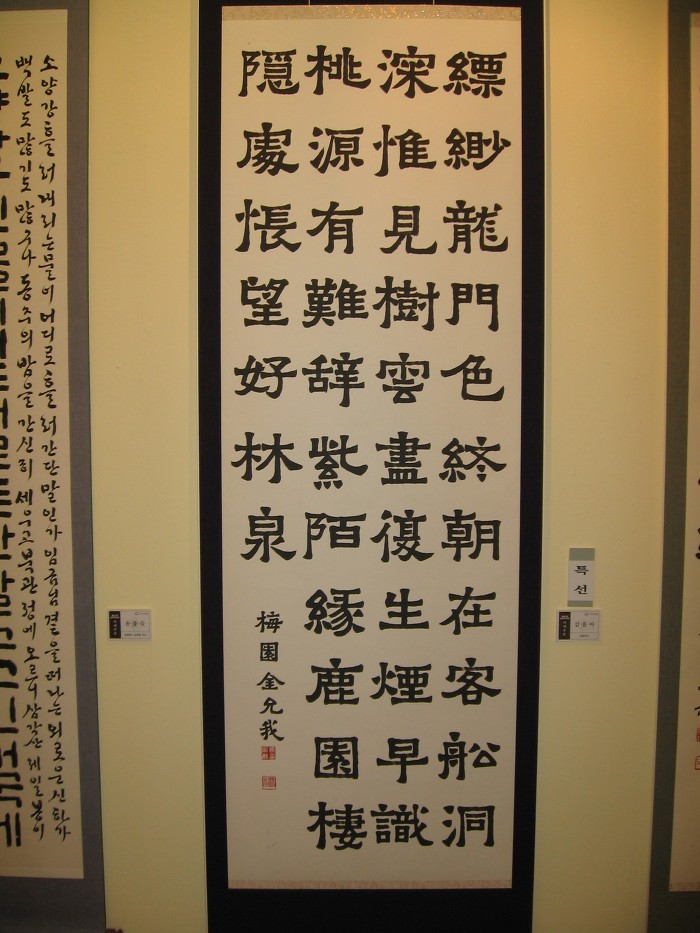 특선
縹緲龍門色終朝在客船洞
深惟見樹雲盡復生煙早識
桃源有難辞紫陌緣鹿園棲
隱處悵望好林泉
梅園金允我
소양강흘러내리는물이어디로흘러간단말인가임금님곁을떠나는외로운신하가
백발도많기도많구나동주의밤을간신히세우고북관정에오르니삼각산제일봉이